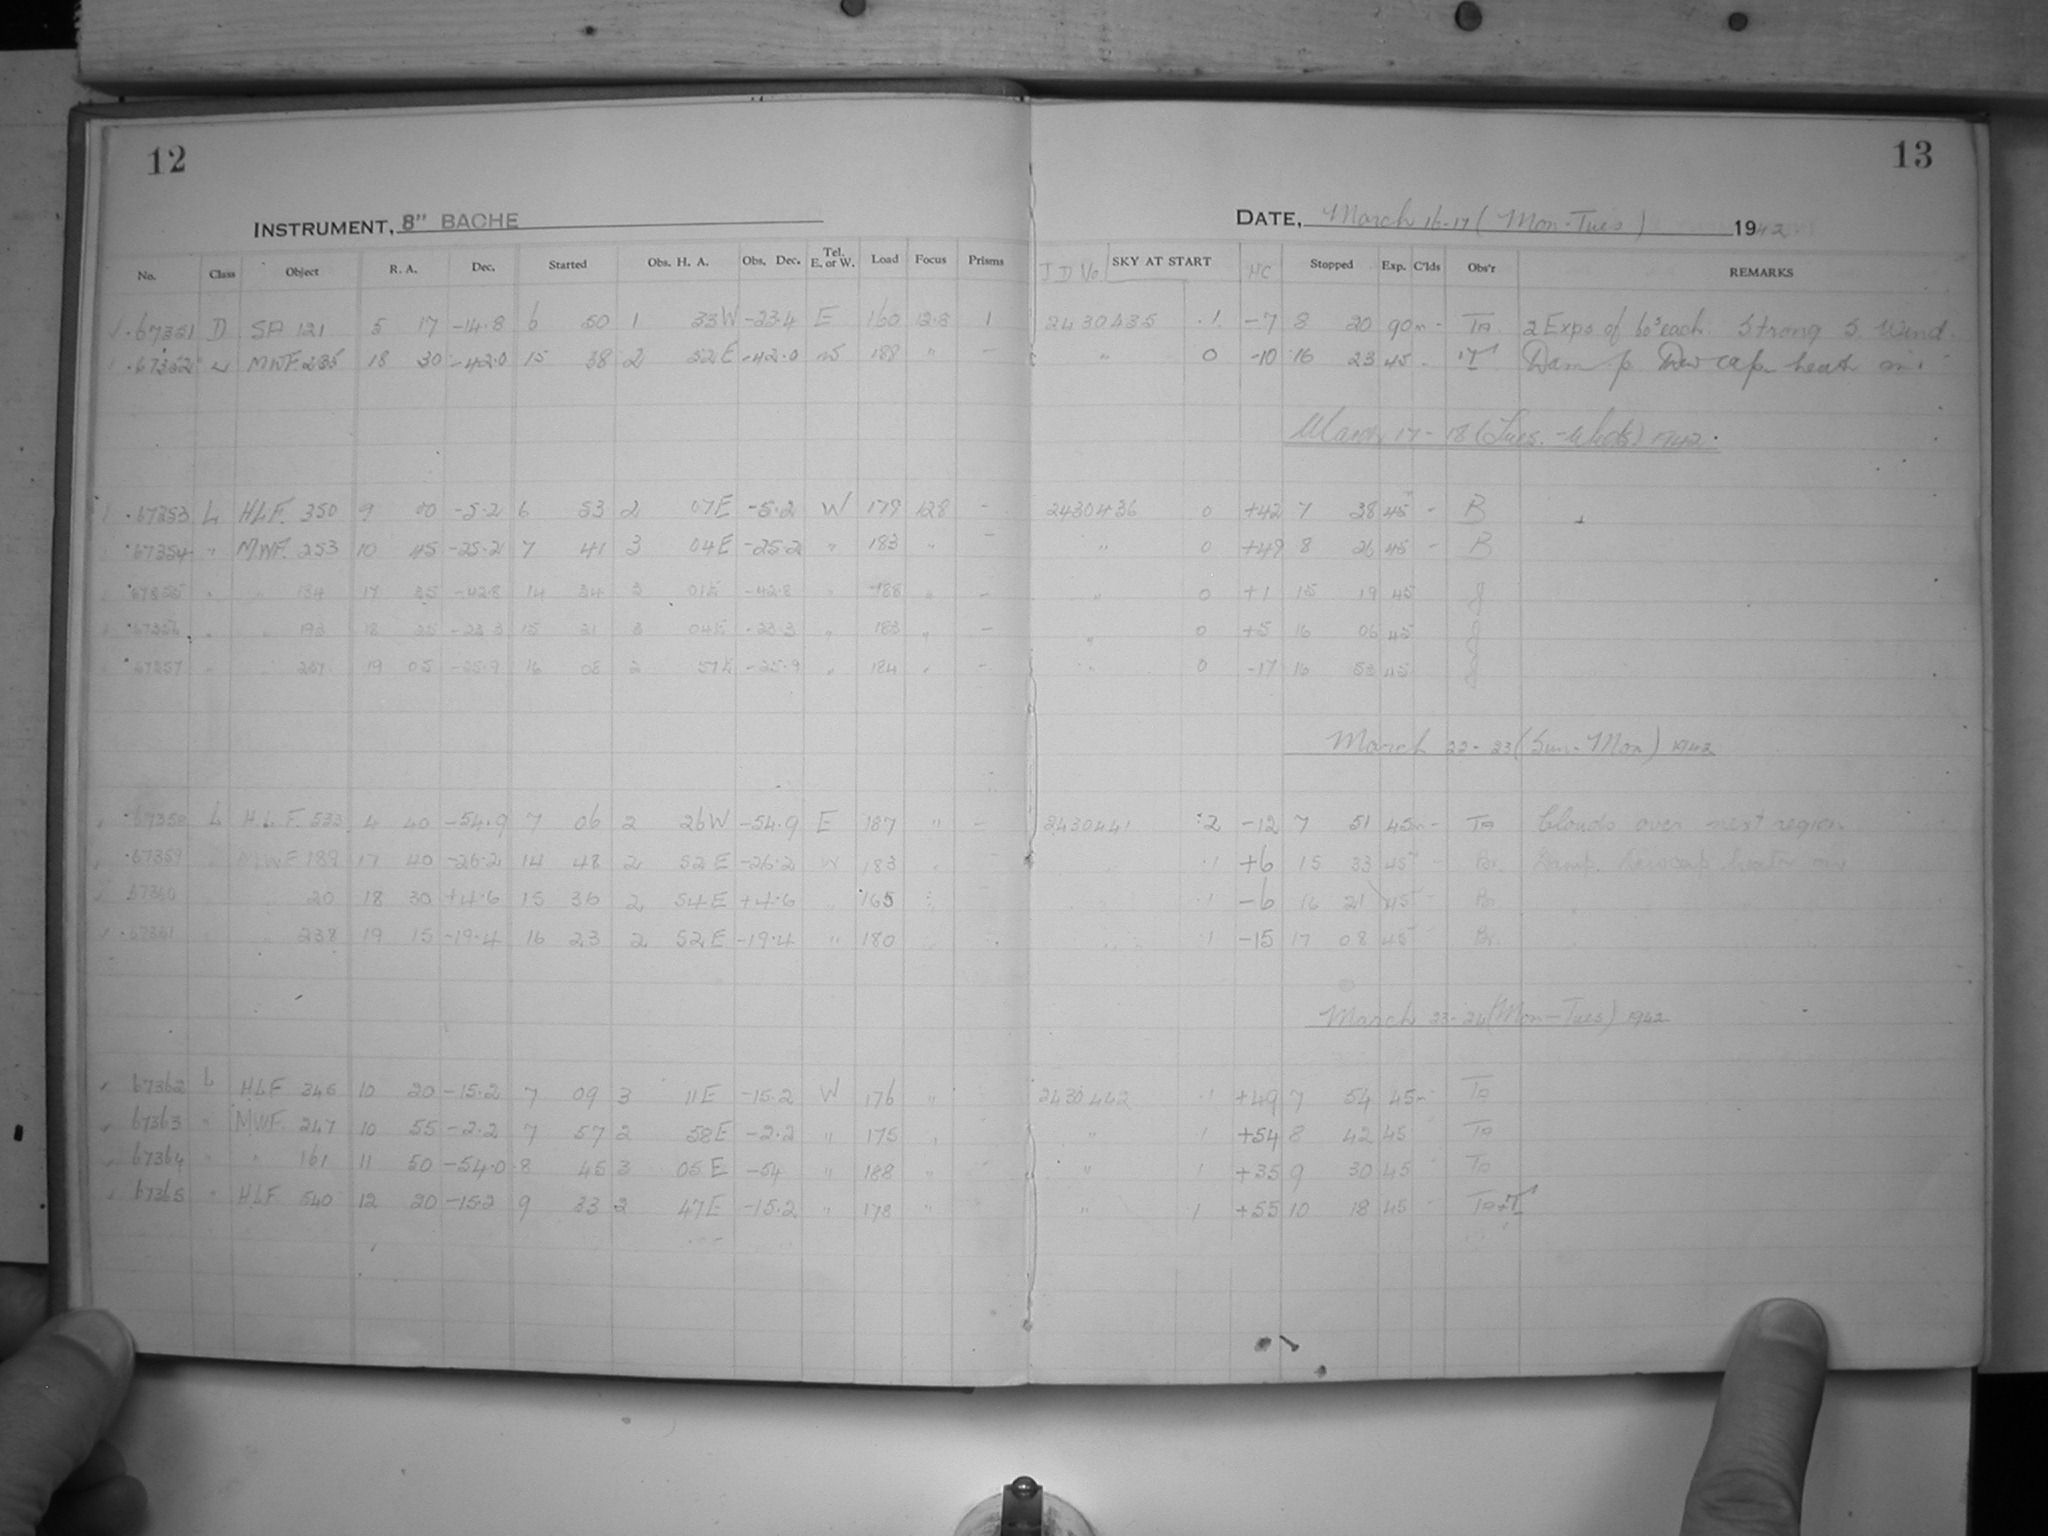 12
13
INSTRUMENT, 8" BACHE
DATE, March 16-17 (Mon-Tues) 1942
No. Class Object R. A. Dec. Started Obs. H. A. Obs. Dec. Tel. E. or W. Load Focus Prisms J D No. SKY AT START HC Stopped Exp. C'lds Obs'r REMARKS
67351 D SA 121 5 17 -14.8 6 50 1 33W -23.4 E 160 12.8 1 2430435 .1 -7 8 20 90m - Ta 2 Exps of 60s each. Strong S. Wind.
67352 L MWF. 235 18 30 -42.0 15 38 2 52E -42.0 W 188 " - " 0 -10 16 23 45 - T Damp Dew cap heat on.
March 17-18 (Tues. - Weds) 1942.
67353 L HLF. 350 9 00 -5.2 6 53 2 07E -5.2 W 179 128 - 2430436 0 +42 7 38 45 - B
67354 " MWF. 253 10 45 -25.2 7 41 3 04E -25.2 " 183 " - " 0 +49 8 26 45 - B
67355 " " 184 17 35 -42.8 14 34 3 01E -42.8 " 188 " - " 0 +1 15 19 45 J
67356 " " 193 18 25 -23.3 15 21 3 04E -23.3 " 183 " - " 0 +5 16 06 45 J
67357 " " 237 19 05 -25.9 16 08 2 57E -25.9 " 184 " - " 0 -17 16 53 45 J
March 22-23 (Sun-Mon) 1942
67358 L H.L.F. 533 4 40 -54.9 7 06 2 26W -54.9 E 187 " - 2430441 .2 -12 7 51 45m - Ta Clouds over next region
67359 MWF 189 17 40 -26.2 14 48 2 52E -26.2 W 183 .1 +6 15 33 45 - Br. Damp. Dewcap heater on
67360 20 18 30 +4.6 15 36 2 54E +4.6 " 165 .1 -6 16 21 45 - Br.
67361 238 19 15 -19.4 16 23 2 52E -19.4 " 180 .1 -15 17 08 45 Br.
March 23-24 (Mon-Tues) 1942
67362 L HLF 345 10 20 -15.2 7 09 3 11E -15.2 W 176 " 2430442 .1 +49 7 54 45m Ta
67363 " MWF. 247 10 55 -2.2 7 57 2 58E -2.2 " 175 " " 1 +54 8 42 45 Ta
67364 " " 161 11 50 -54.0 8 45 3 05E -54 " 188 " " 1 +35 9 30 45 Ta
67365 " HLF 540 12 20 -15.2 9 33 2 47E -15.2 " 178 " " 1 +55 10 18 45 - Ta+T